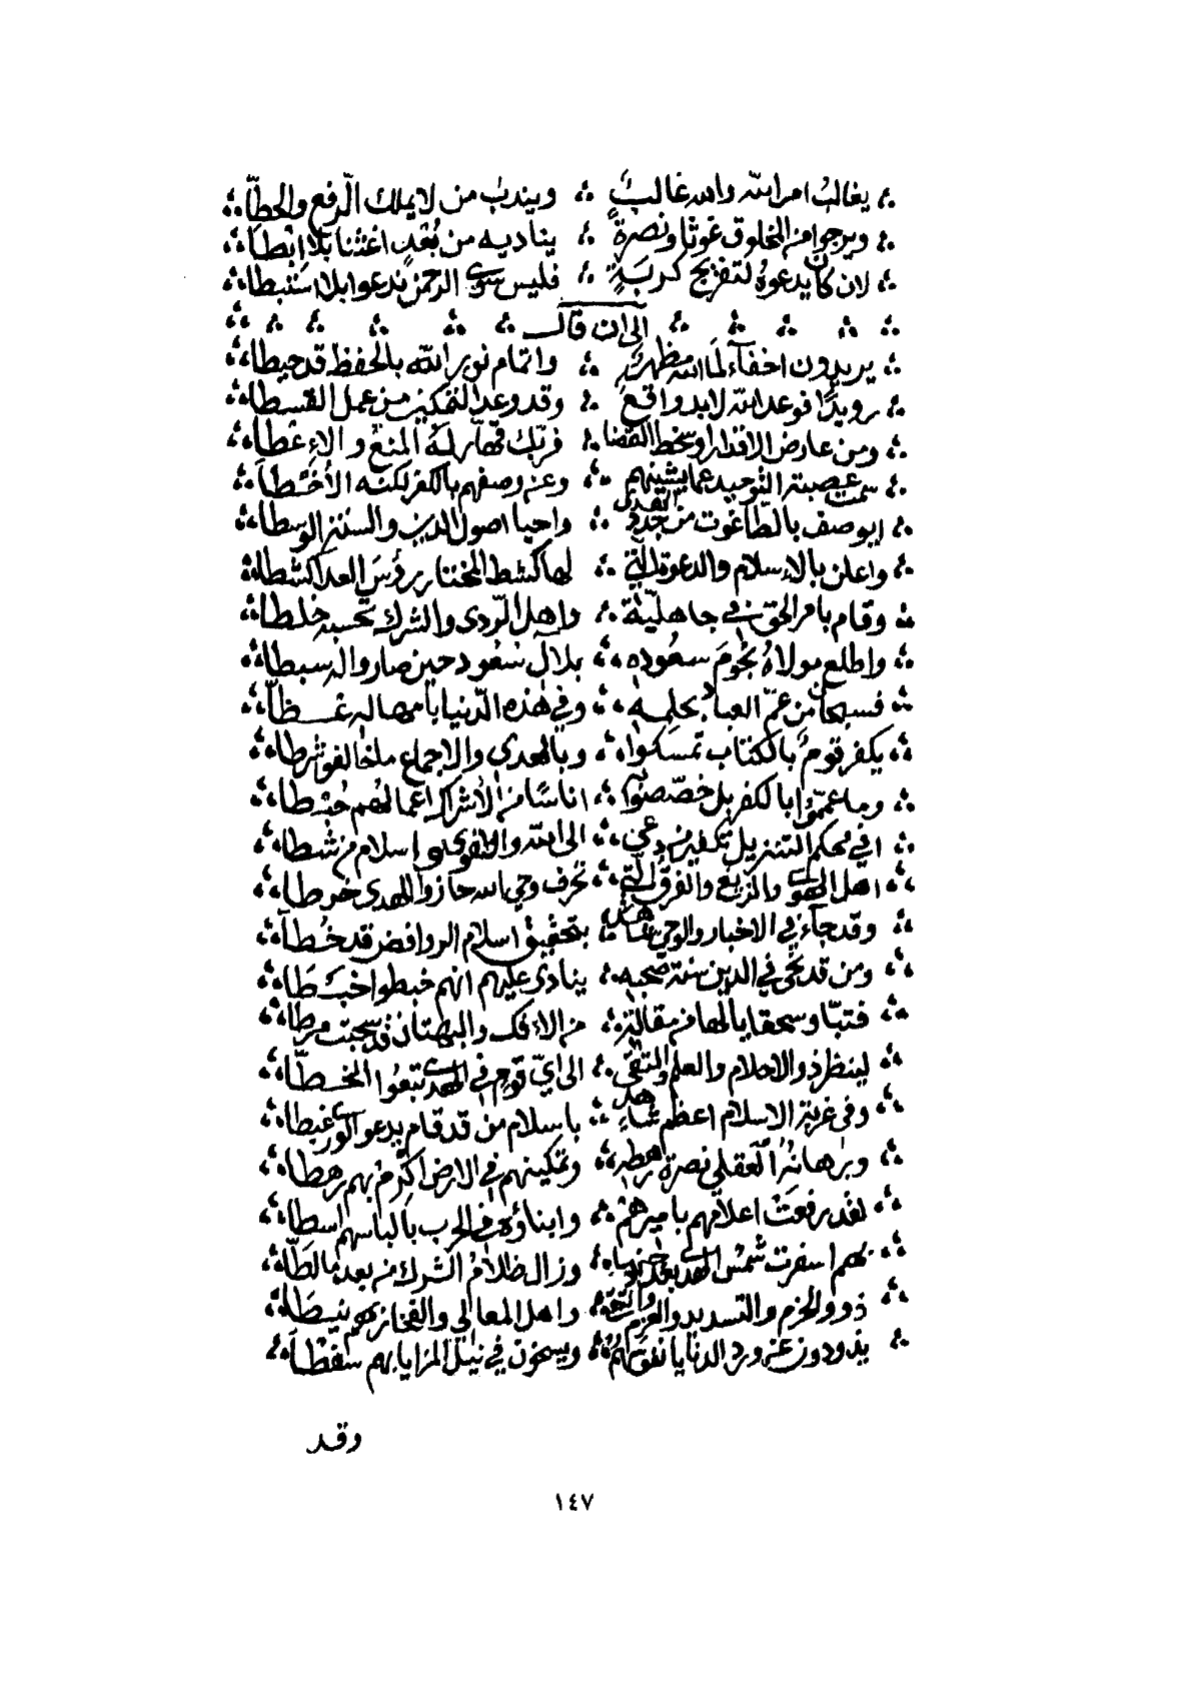 يغالب امر الله والله غالب ∴ ويندب من لا يملك الرفع والحطا
ويرجوا من المخلوق غوثا ونصرة ∴ يناديه من بعد اغثنا بلا ابطا
لان كان يدعوه لتفريج كربة ∴ فليس سوى الرحمن ندعوا بلا استبطا
الى ان قال
يريدون اخفاء لما الله مظهر ∴ واتمام نور الله بالحفظ قد حيطا
رويدا فوعد الله لا بد واقع ∴ وقد وعد التمكين من عمل القسطا
ومن عارض الاقدار او سخط القضا ∴ فربك قهار له المنع والاعطا
سمت عصبة التوحيد عما يشينهم ∴ وعن وصفهم بالكفر لكنه الاخطا
ايوصف بالطاغوت من جدد الهدى ∴ واحيا اصول الدين والسنن الوسطا
واعلن بالاسلام والدعوة التي ∴ لها كشط المختار رؤس العدا كشطا
وقام بامر الحق في جاهلية ∴ واهل الردى والشرك تحسبه خلطا
واطلع مولاه نجوم سعوده ∴ بلال سعود حين صاروا له سبطا
فسبحان من عم العباد بحلمه ∴ وفي هذه الدنيا بامهاله غطا
يكفر قوم بالكتاب تمسكوا ∴ وبالهدى والاجماع ما خالفوا شرطا
وما عمموا بالكفر بل خصصوا ∴ اناسا من الاشراك اعمالهم حبطا
افي محكم التنزيل تكفير من دعى ∴ الى الله والتقوى واسلام من شطا
اهل الهوى والزيغ والفرق التي ∴ تحرف وحي الله حازوا الهدى خرطا
وقد جاء في الاخبار والوحي شاهد ∴ بتحقيق اسلام الروافض قد خطا
ومن قد نحى في الدين سنة صحبه ∴ ينادى عليهم انهم خبطوا خبطا
فتبا وسحقا يا لها من مقالة ∴ من الافك والبهتان قد سحبت مرطا
لينظر ذو الاحلام والعلم والتقى ∴ الى اي قوم في الهدى تبعوا الخطا
وفي غربة الاسلام اعظم شاهد ∴ باسلام من قد قام يدعو الورى غبطا
وبرهانه العقلي نصرة رهطه ∴ وتمكينهم في الارض اكرم بهم رهطا
لقد رفعت اعلامهم باميرهم ∴ وابناؤه في الحرب بالباسهم اسطا
بهم اسفرت شمس الهدى بعد ∴ وزال ظلام الشرك من بعد ما لطا
ذوو الحزم والتسديد والعزم والتقى ∴ واهل المعالي والفخار بهم نيطا
يذودون عن ورد الدنايا نفوسهم ∴ ويسخون في نيل المزايا بهم سفطا
وقد
١٤٧